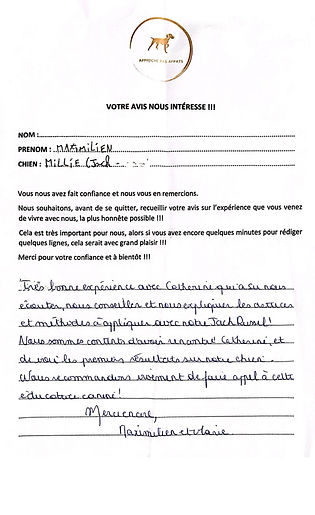 APPROCHE PAR APPATS
VOTRE AVIS NOUS INTÉRESSE !!!
NOM :
PRENOM : MAXIMILIEN
CHIEN : MILLIE (Jack
Vous nous avez fait confiance et nous vous en remercions.
Nous souhaitons, avant de se quitter, recueillir votre avis sur l'expérience que vous venez
de vivre avec nous, la plus honnête possible !!!
Cela est très important pour nous, alors si vous avez encore quelques minutes pour rédiger
quelques lignes, cela serait avec grand plaisir !!!
Merci pour votre confiance et à bientôt !!!
Très bonne expérience avec Catherine qui a su nous
écouter, nous conseiller et nous expliquer les astuces
et méthodes à appliquer avec notre Jack Russel!
Nous sommes contents d'avoir rencontré Catherine, et
de voir les premiers résultats sur notre chien.
Nous recommandons vivement de faire appel à cette
éducatrice canine!
Merci encore,
Maximilien et Marie